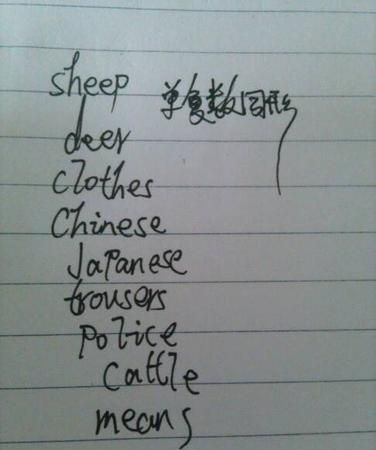 sheep 单复数同形
deer
clothes
Chinese
Japanese
trousers
police
cattle
means